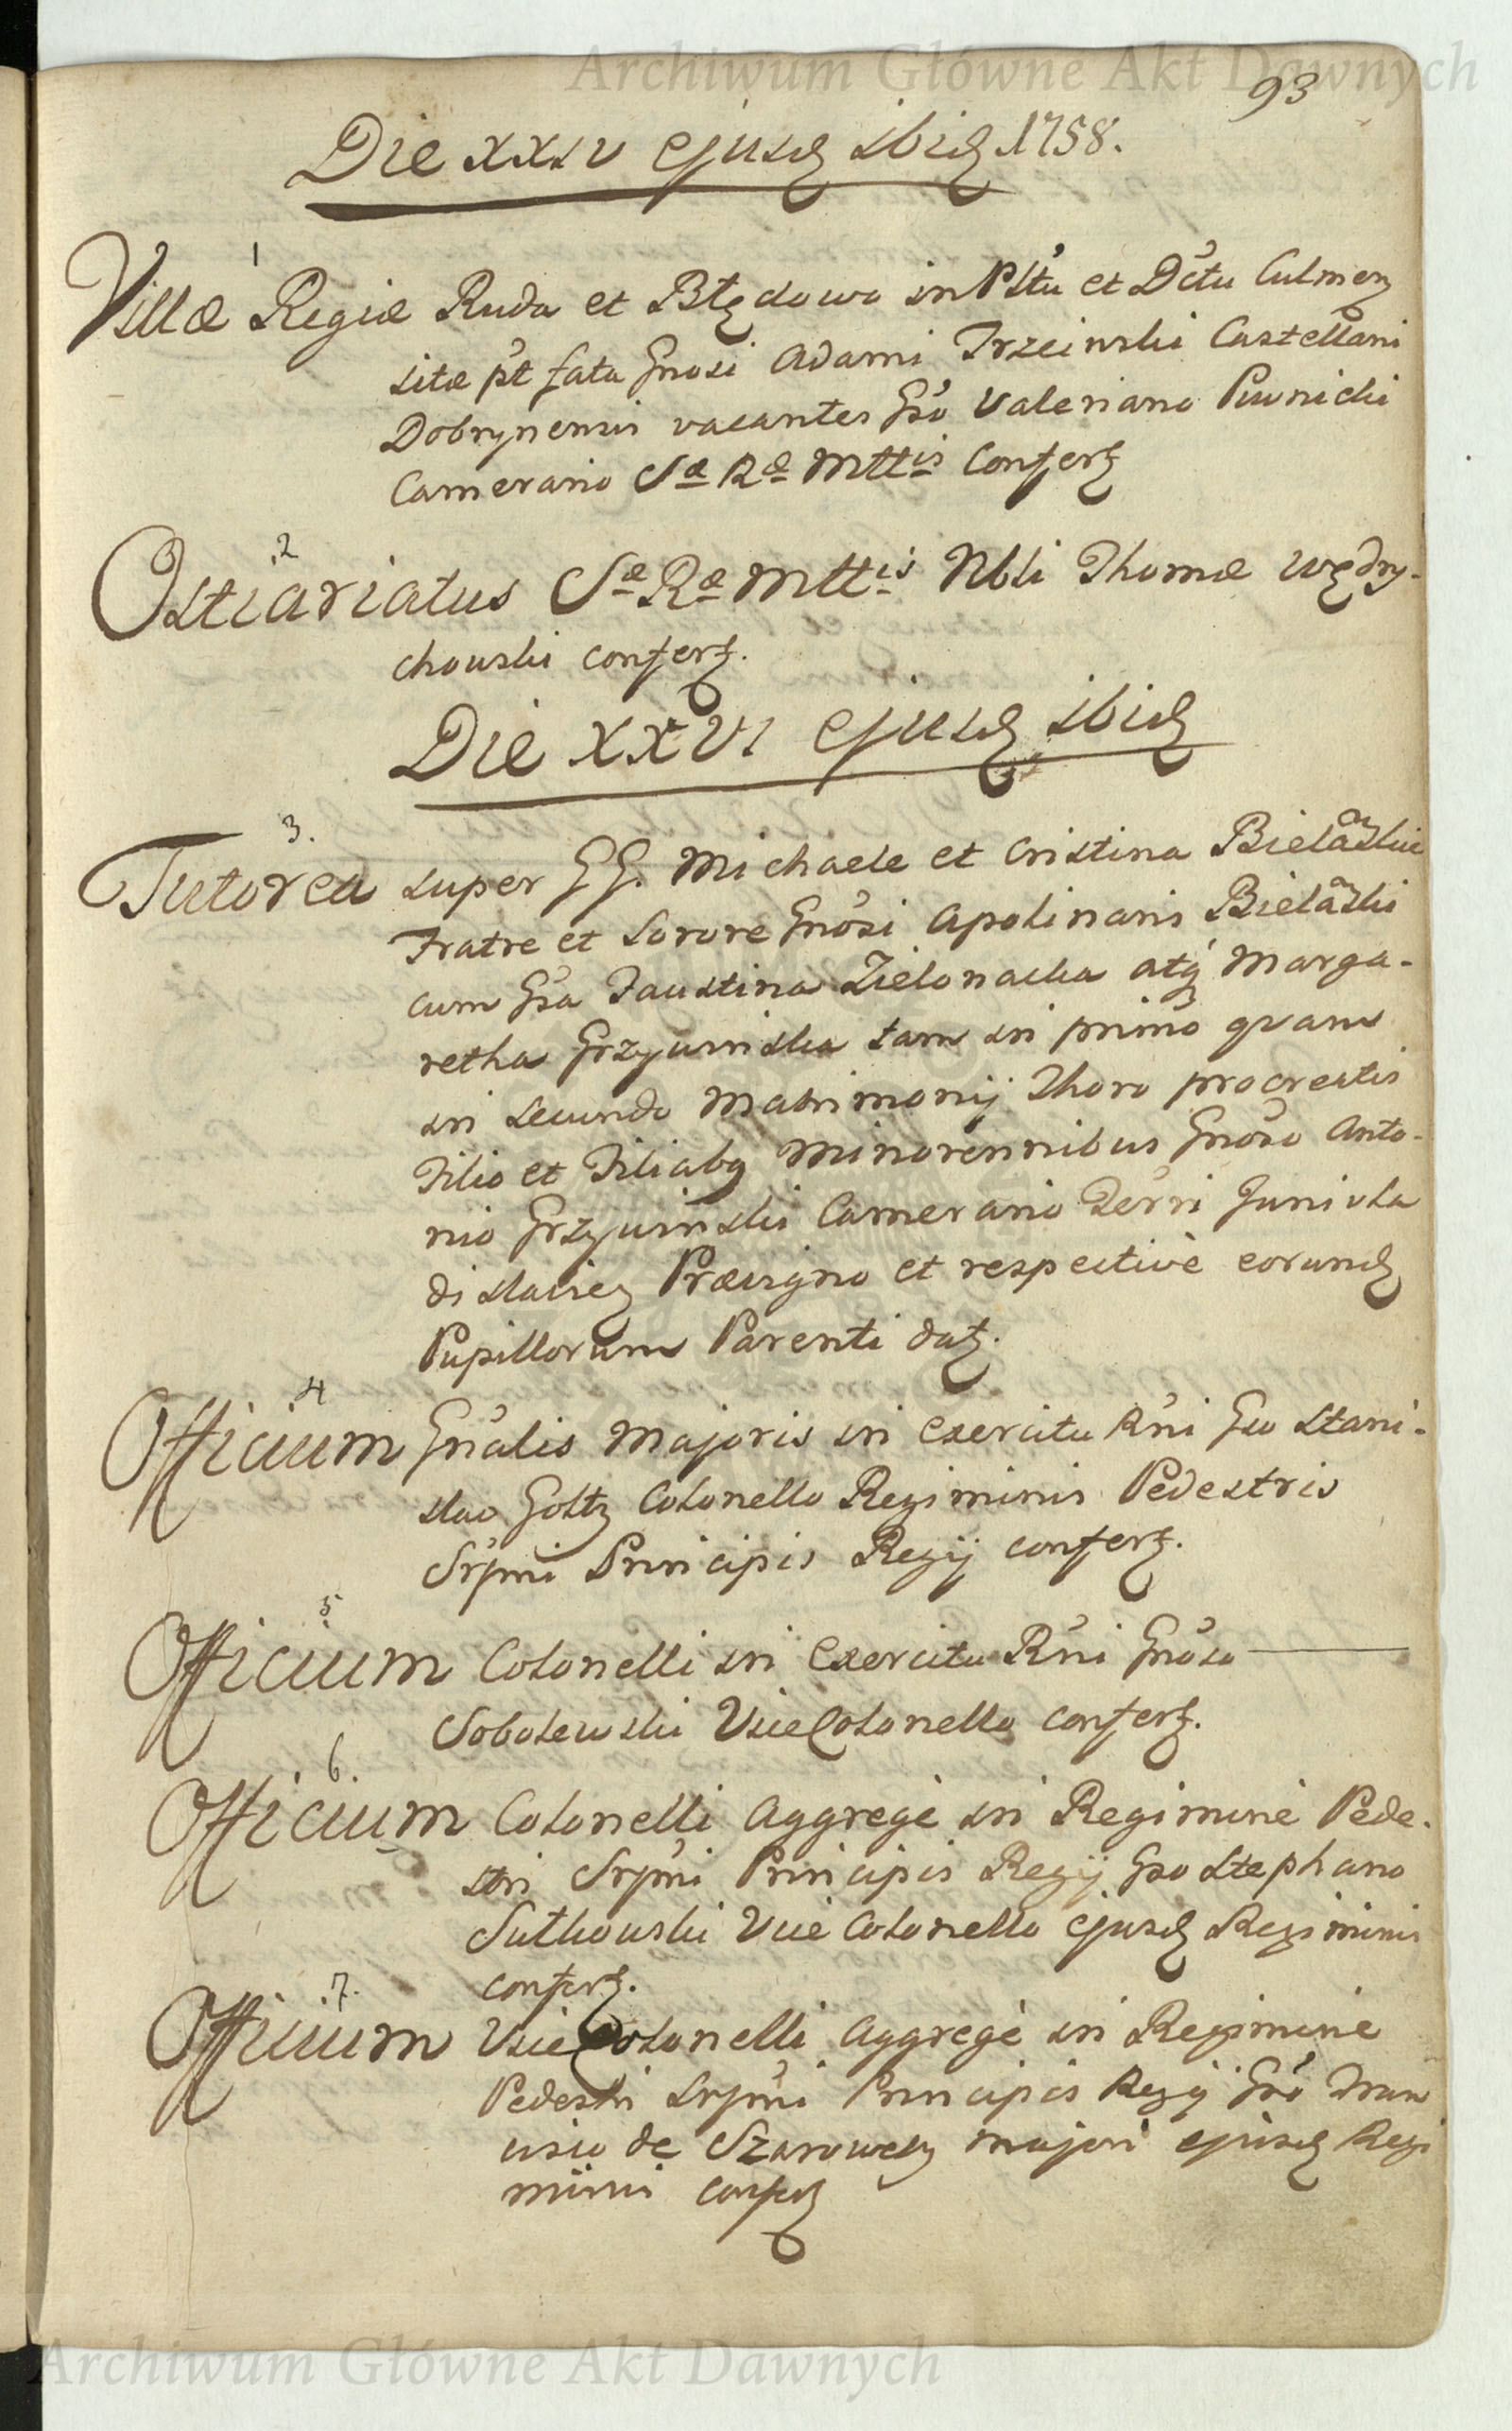 Archiwum Główne Akt Dawnych
93
Die XXIV ejusd ibid 1758.
1
Villæ Regiæ Ruda et Błędowo in Plttu et Dctu Culmen
sitæ pt fata Gnosi Adami Trzcinski Castellani
Dobrynensis vacantes Gso Valeriano Piwnicki
Camerario Sæ Ræ Mttis confert
2
Ostiariatus Sæ Ræ Mttis Nbli Thomæ Wędry-
chowski confert.
Die XXVI ejusd ibid
3.
Tutorea super GG. Michaele et Cristina Bielańskie
Fratre et Sorore Gnosi Apolinaris Bielański
cum Gsa Faustina Zielonacka atq Marga-
retha Grzywinska tam in primo quam
in secundo Matrimonij Thoro procreatis
Filio et Filiabq Minorennibus Gnoso Anto-
nio Grzywinski Camerario Terri Junivla
dislavien Præsigno et respectivè eorund
Pupillorum Parenti dat.
4
Officium Gnalis Majoris in Exercitu Rni Gso Stani-
slao Goltz Colonello Regiminis Pedestris
Srpmi Principis Regij confert.
5
Officium Colonelli in Exercitu Rni Gnoso
Sobolewski ViceColonello confert.
6.
Officium Colonelli Aggregè in Regiminè Pede-
stri Srpmi Principis Regij Gso Stephano
Sutkowski Vice Colonello ejusd Regiminis
confert.
7.
Officium ViceColonelli Aggregè in Regimine
Pedestri Srpmi Principis Regij Gso Fran
cisco de Szarowetz majori ejusd Regi
minis confert
Archiwum Główne Akt Dawnych